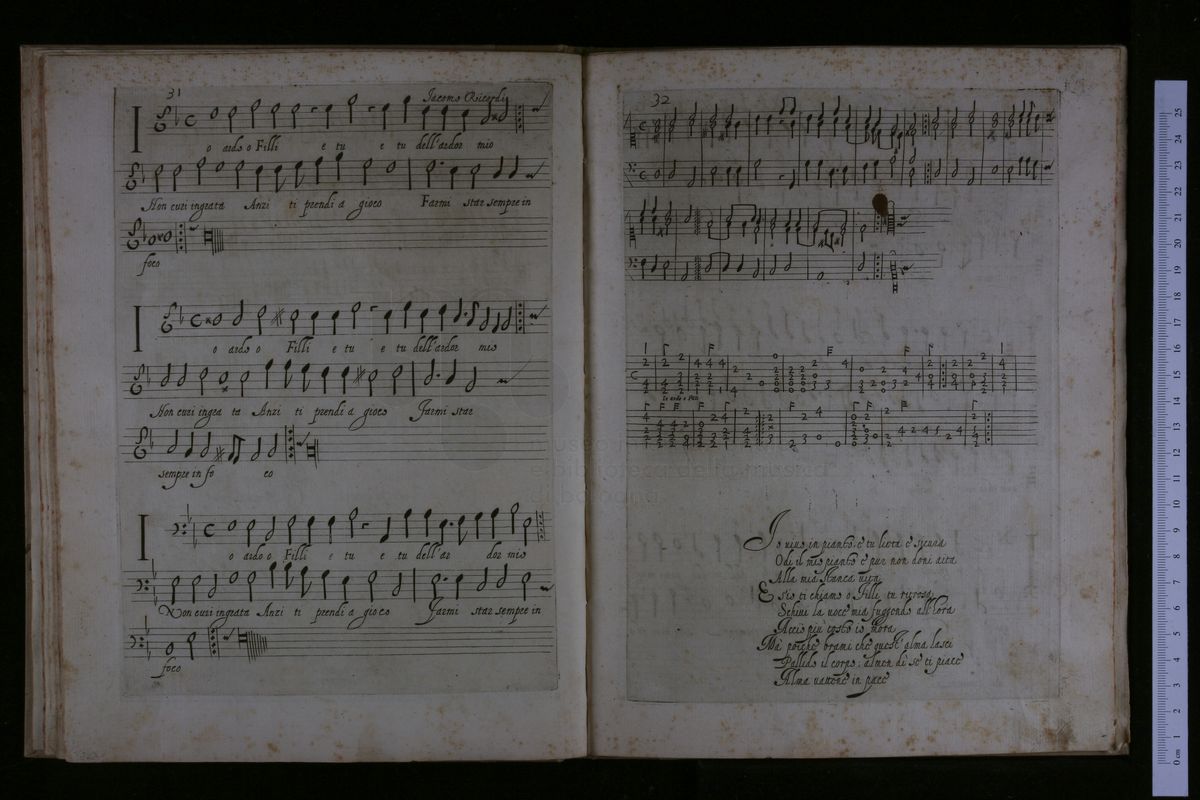 31
Jacomo Ricordi
I
o ardo o Filli e tu e tu dell'ardor mio
Non curi ingrata Anzi ti prendi a gioco Farmi star sempre in
foco
I
o ardo o Filli e tu e tu dell'ardor mio
Non curi ingra ta Anzi ti prendi a gioco Farmi star
sempre in fo co
I
o ardo o Filli e tu e tu dell'ar dor mio
Non curi ingrata Anzi ti prendi a gioco Farmi star sempre in
foco
32
Io ardo o Filli
Io vivo in pianto, e tu lieta e sicura
Odi il mio pianto e pur non doni aita
Alla mia stanca vita
E s'io ti chiamo o Filli, tu ritrosa
Schivi la voce mia fuggendo all'hora
Accio piu tosto io mora
Ma poiche brami che quest'alma lasci
Pallido il corpo, almen di se ti piace
Alma vattene in pace
museo
biblioteca della musica
di bologna
0 cm 1 2 3 4 5 6 7 8 9 10 11 12 13 14 15 16 17 18 19 20 21 22 23 24 25